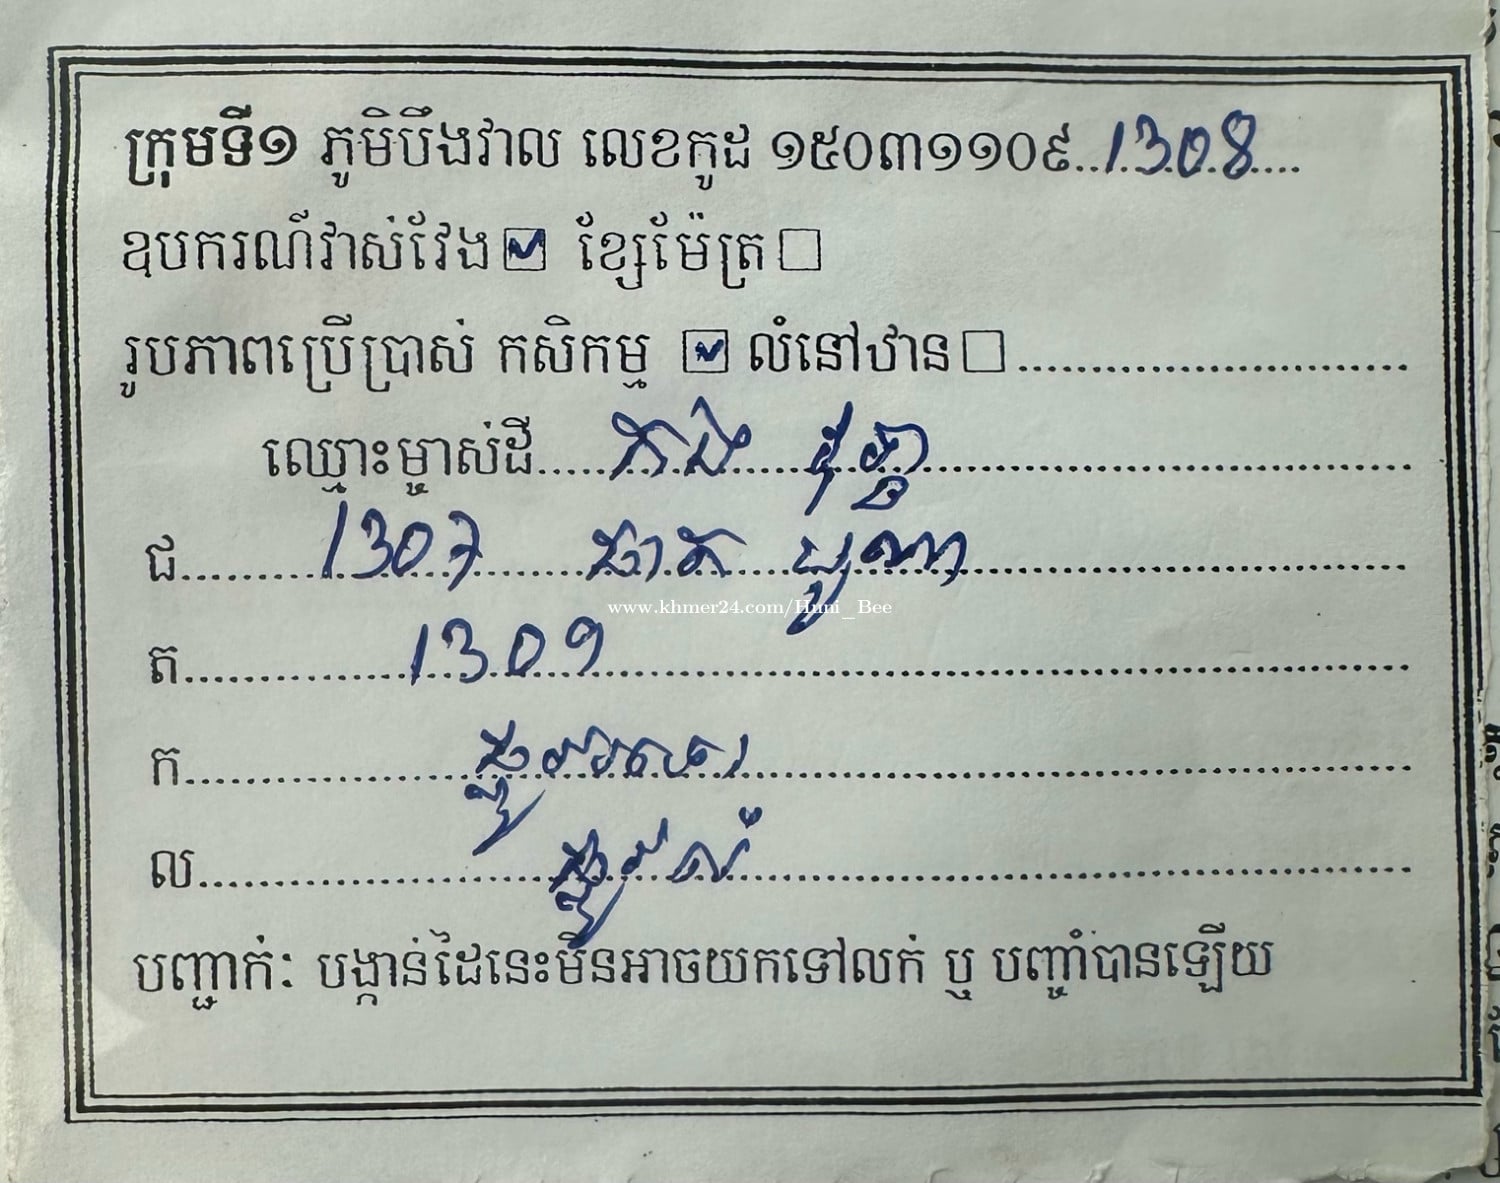 ក្រុមទី១ ភូមិបឹងវាល លេខកូដ ១៥០៣១១០៩..1308....
ឧបករណ៍វាស់វែង ខ្សែម៉ែត្រ
រូបភាពប្រើប្រាស់ កសិកម្ម លំនៅឋាន
ឈ្មោះម្ចាស់ដី
ជ 1307
www.khmer24.com/Huni_Bee
ត 1309
ក
ល
បញ្ជាក់: បង្កាន់ដៃនេះមិនអាចយកទៅលក់ ឬ បញ្ចាំបានឡើយ